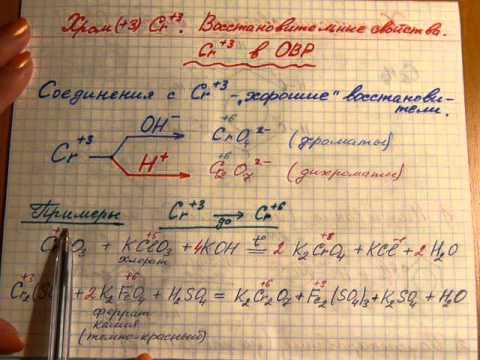 Хром (+3) Cr⁺³. Восстановительные свойства.
Cr⁺³ в ОВР
Соединения с Cr⁺³ - „хорошие" восстанови-
тели.
OH⁻ +6 CrO₄²⁻ (хроматы)
Cr⁺³
H⁺ +6 Cr₂O₇²⁻ (дихроматы)
Примеры Cr⁺³ → до Cr⁺⁶
O₃ + KClO₃ + 4KOH = t° 2 K₂CrO₄ + KCl + 2 H₂O
хлорат
Cr₂(S + 2 K₂FeO₄ + H₂SO₄ = K₂Cr₂O₇ + Fe₂(SO₄)₃ + K₂SO₄ + H₂O
феррат
калия
(темно-красный)